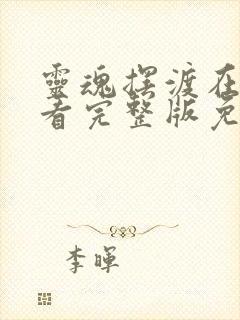 靈魂摆渡在
看完整版免
李暉